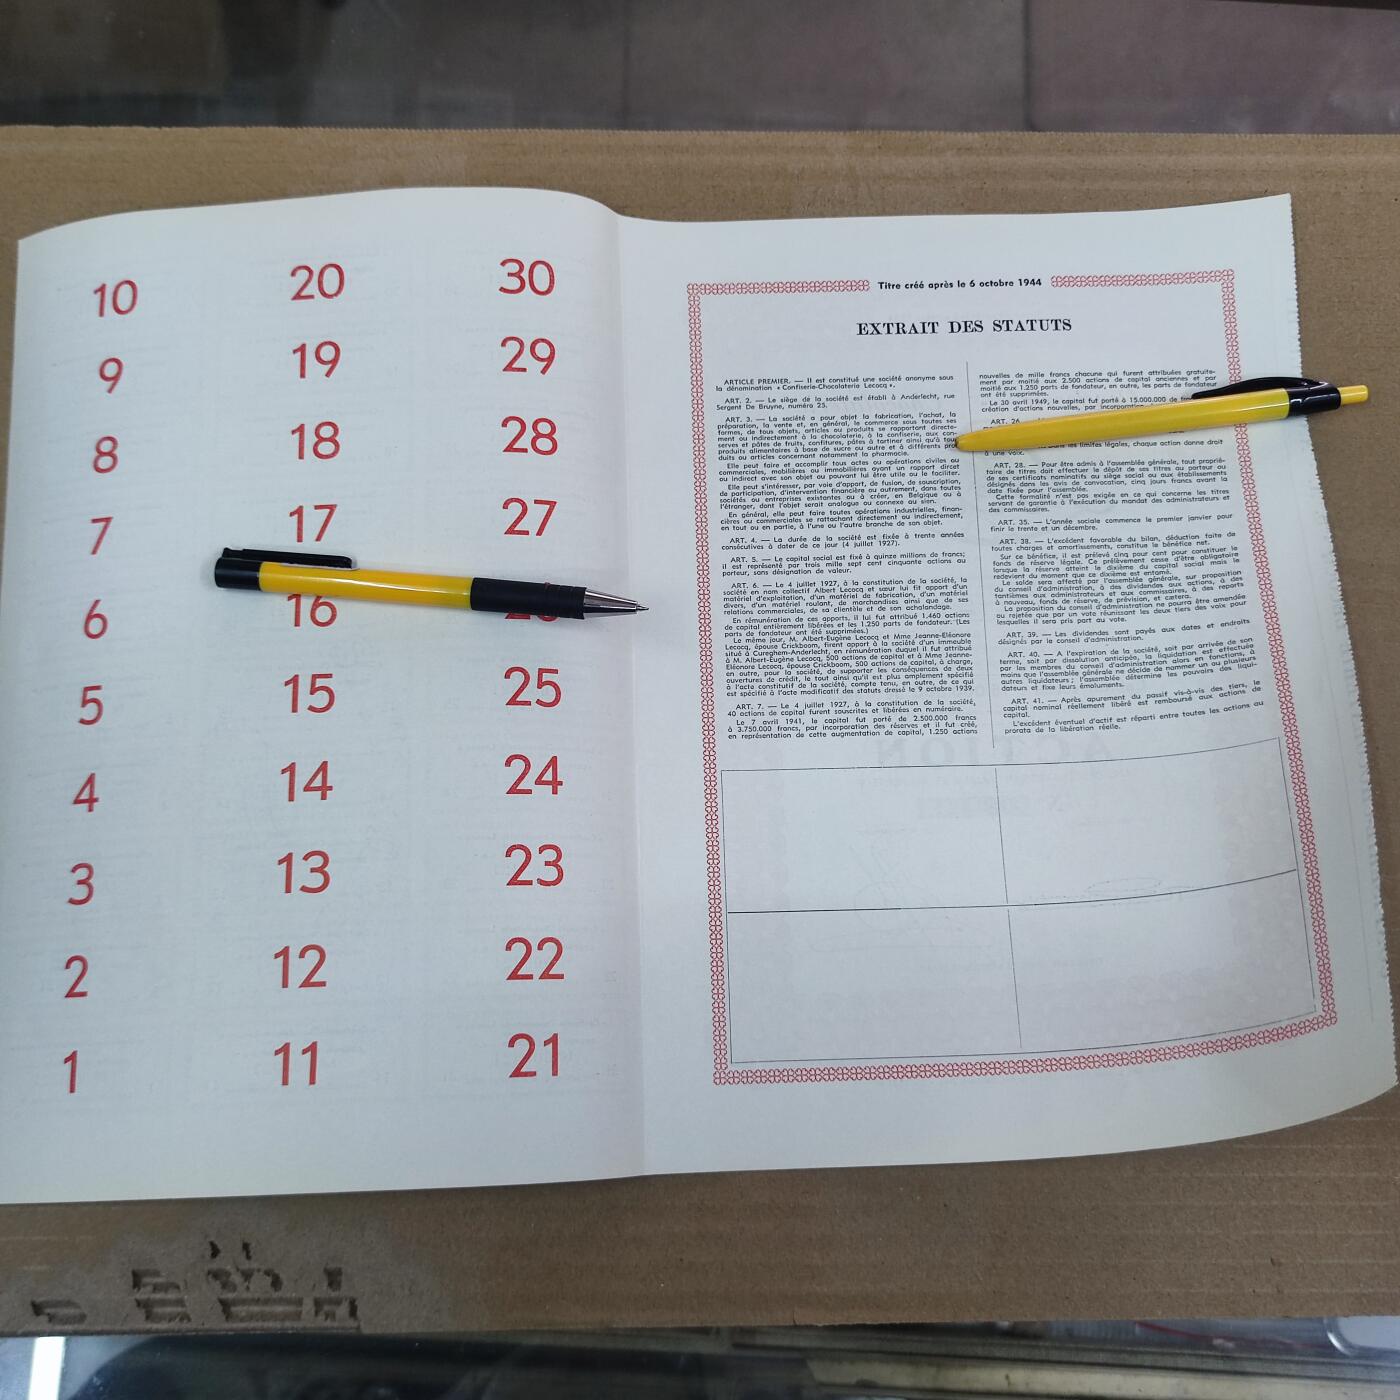 10 20 30
9 19 29
8 18 28
7 17 27
6 16
5 15 25
4 14 24
3 13 23
2 12 22
1 11 21
Titre créé après le 6 octobre 1944
EXTRAIT DES STATUTS
ARTICLE PREMIER. — Il est constitué une société anonyme sous
la dénomination « Confiserie-Chocolaterie Lecocq ».
ART. 2. — Le siège de la société est établi à Anderlecht, rue
Sergent De Bruyne, numéro 25.
ART. 3. — La société a pour objet la fabrication, l'achat, la
préparation, la vente et, en général, le commerce sous toutes ses
formes, de tous objets, articles ou produits se rapportant directe-
ment ou indirectement à la chocolaterie, à la confiserie, aux con-
serves et pâtes de fruits, confitures, pâtes à tartiner ainsi qu'à tous
produits alimentaires à base de sucre ou autre et à différents pro
duits ou articles concernant notamment la pharmacie.
Elle peut faire et accomplir tous actes ou opérations civiles ou
commerciales, mobilières ou immobilières ayant un rapport direct
ou indirect avec son objet ou pouvant lui être utile ou le faciliter.
Elle peut s'intéresser, par voie d'apport, de fusion, de souscription,
de participation, d'intervention financière ou autrement, dans toutes
sociétés ou entreprises existantes ou à créer, en Belgique ou à
l'étranger, dont l'objet serait analogue ou connexe au sien.
En général, elle peut faire toutes opérations industrielles, finan-
cières ou commerciales se rattachant directement ou indirectement,
en tout ou en partie, à l'une ou l'autre branche de son objet.
ART. 4. — La durée de la société est fixée à trente années
consécutives à dater de ce jour (4 juillet 1927).
ART. 5. — Le capital social est fixé à quinze millions de francs;
il est représenté par trois mille sept cent cinquante actions au
porteur, sans désignation de valeur.
ART. 6. — Le 4 juillet 1927, à la constitution de la société, la
société en nom collectif Albert Lecocq et sœur lui fit apport d'un
matériel d'exploitation, d'un matériel de fabrication, d'un matériel
divers, d'un matériel roulant, de marchandises ainsi que de ses
relations commerciales, de sa clientèle et de son achalandage.
En rémunération de ces apports, il lui fut attribué 1.460 actions
de capital entièrement libérées et les 1.250 parts de fondateur. (Les
parts de fondateur ont été supprimées.)
Le même jour, M. Albert-Eugène Lecocq et Mme Jeanne-Eléonore
Lecocq, épouse Crickboom, firent apport à la société d'un immeuble
situé à Cureghem-Anderlecht, en rémunération duquel il fut attribué
à M. Albert-Eugène Lecocq, 500 actions de capital et à Mme Jeanne-
Eléonore Lecocq, épouse Crickboom, 500 actions de capital, à charge,
en outre, pour la société, de supporter les conséquences de deux
ouvertures de crédit, le tout ainsi qu'il est plus amplement spécifié
à l'acte constitutif de la société, compte tenu, en outre, de ce qui
est spécifié à l'acte modificatif des statuts dressé le 9 octobre 1939.
ART. 7. — Le 4 juillet 1927, à la constitution de la société,
40 actions de capital furent souscrites et libérées en numéraire.
Le 7 avril 1941, le capital fut porté de 2.500.000 francs
à 3.750.000 francs, par incorporation des réserves et il fut créé,
en représentation de cette augmentation de capital, 1.250 actions
nouvelles de mille francs chacune qui furent attribuées gratuite-
ment par moitié aux 2.500 actions de capital anciennes et par
moitié aux 1.250 parts de fondateur, en outre, les parts de fondateur
ont été supprimées.
Le 30 avril 1949, le capital fut porté à 15.000.000 de
création d'actions nouvelles, par
ART. 26.
les limites légales, chaque action donne droit
à une voix.
ART. 28. — Pour être admis à l'assemblée générale, tout proprié-
taire de titres doit effectuer le dépôt de ses titres au porteur ou
de ses certificats nominatifs au siège social ou aux établissements
désignés dans les avis de convocation, cinq jours francs avant la
date fixée pour l'assemblée.
Cette formalité n'est pas exigée en ce qui concerne les titres
servant de garantie à l'exécution du mandat des administrateurs et
des commissaires.
ART. 35. — L'année sociale commence le premier janvier pour
finir le trente et un décembre.
ART. 38. — L'excédent favorable du bilan, déduction faite de
toutes charges et amortissements, constitue le bénéfice net.
Sur ce bénéfice, il est prélevé cinq pour cent pour constituer le
fonds de réserve légale. Ce prélèvement cesse d'être obligatoire
lorsque la réserve atteint le dixième du capital social mais le
redevient du moment que ce dixième est entamé.
Le solde sera affecté par l'assemblée générale, sur proposition
du conseil d'administration, à des dividendes aux actions, à des
tantièmes aux administrateurs et aux commissaires, à des reports
à nouveau, fonds de réserve, de prévision, et cætera.
La proposition du conseil d'administration ne pourra être amendée
ou rejetée que par un vote réunissant les deux tiers des voix pour
lesquelles il sera pris part au vote.
ART. 39. — Les dividendes sont payés aux dates et endroits
désignés par le conseil d'administration.
ART. 40. — A l'expiration de la société, soit par arrivée de son
terme, soit par dissolution anticipée, la liquidation est effectuée
par les membres du conseil d'administration alors en fonctions, à
moins que l'assemblée générale ne décide de nommer un ou plusieurs
autres liquidateurs ; l'assemblée détermine les pouvoirs des liqui-
dateurs et fixe leurs émoluments.
ART. 41. — Après apurement du passif vis-à-vis des tiers, le
capital nominal réellement libéré est remboursé aux actions de
capital.
L'excédent éventuel d'actif est réparti entre toutes les actions au
prorata de la libération réelle.